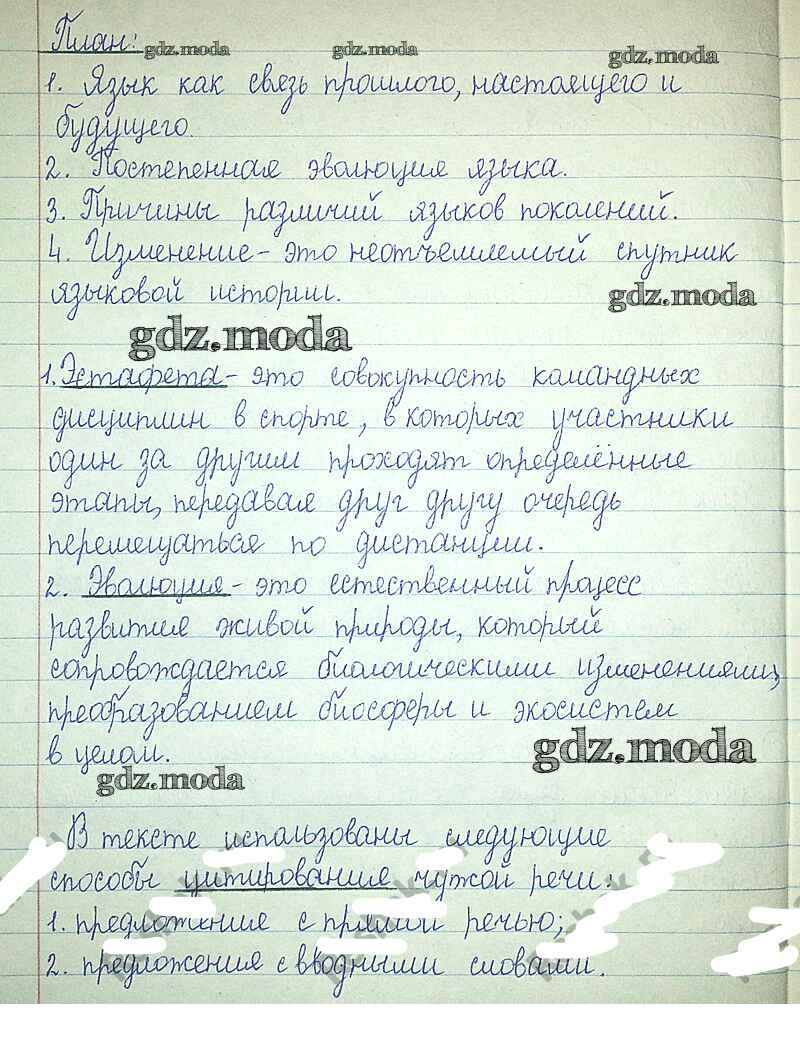 План:
gdz.moda gdz.moda gdz.moda
1. Язык как связь прошлого, настоящего и
будущего.
2. Постепенная эволюция языка.
3. Причины различий языков поколений.
4. Изменение – это неотъемлемый спутник
языковой истории.
gdz.moda
gdz.moda
1. Эстафета – это совокупность командных
дисциплин в спорте, в которых участники
один за другим проходят определённые
этапы, передавая друг другу очередь
перемещаться по дистанции.
2. Эволюция – это естественный процесс
развития живой природы, который
сопровождается биологическими изменениями,
преобразованием биосферы и экосистем
в целом.
gdz.moda
gdz.moda
В тексте использованы следующие
способы цитирования чужой речи:
1. предложение с прямой речью;
2. предложения с вводными словами.